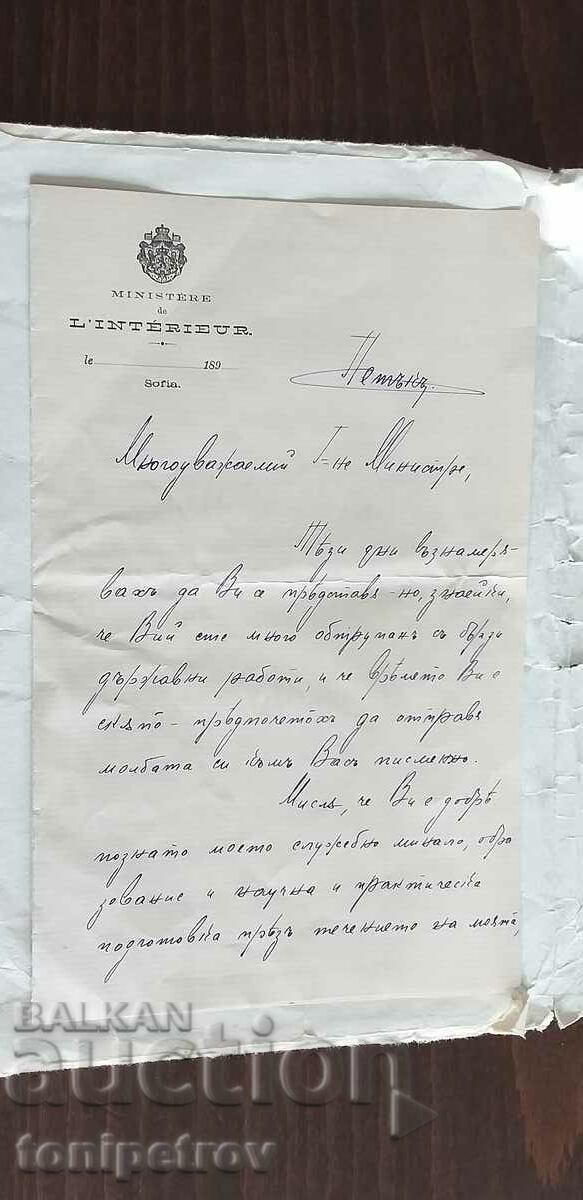 MINISTÈRE
de
L'INTÉRIEUR.
le 189
Sofia.
Петъкъ.
Многоуважаемий Г-не Министре,
Тѣзи дни възнамеря-
вахъ да Ви се прѣдставя - но, знаейки,
че Вий сте много обтрупанъ съ бързи
държавни работи, и че врѣмето Ви е
скѫпо - прѣдпочетохъ да отправя
молбата си къмъ Васъ писменно.
Мисля, че Ви е добрѣ
познато моето служебно минало, обра
зование и научна и практическа
подготовка прѣзъ течението на моята,
BALKAN
auction
tonipetrov